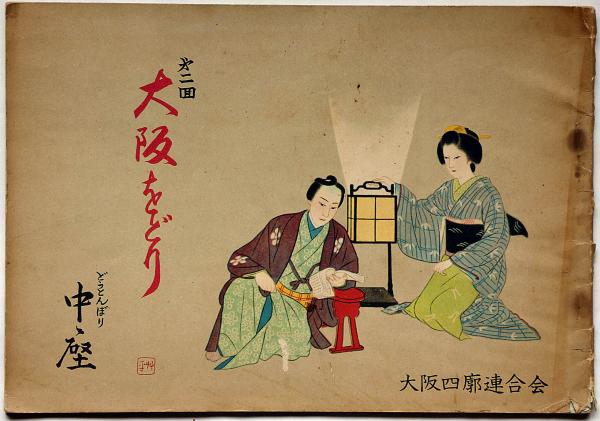 㐧二回
大阪をどり
どうとんぼり
中座
大阪四廓連合会